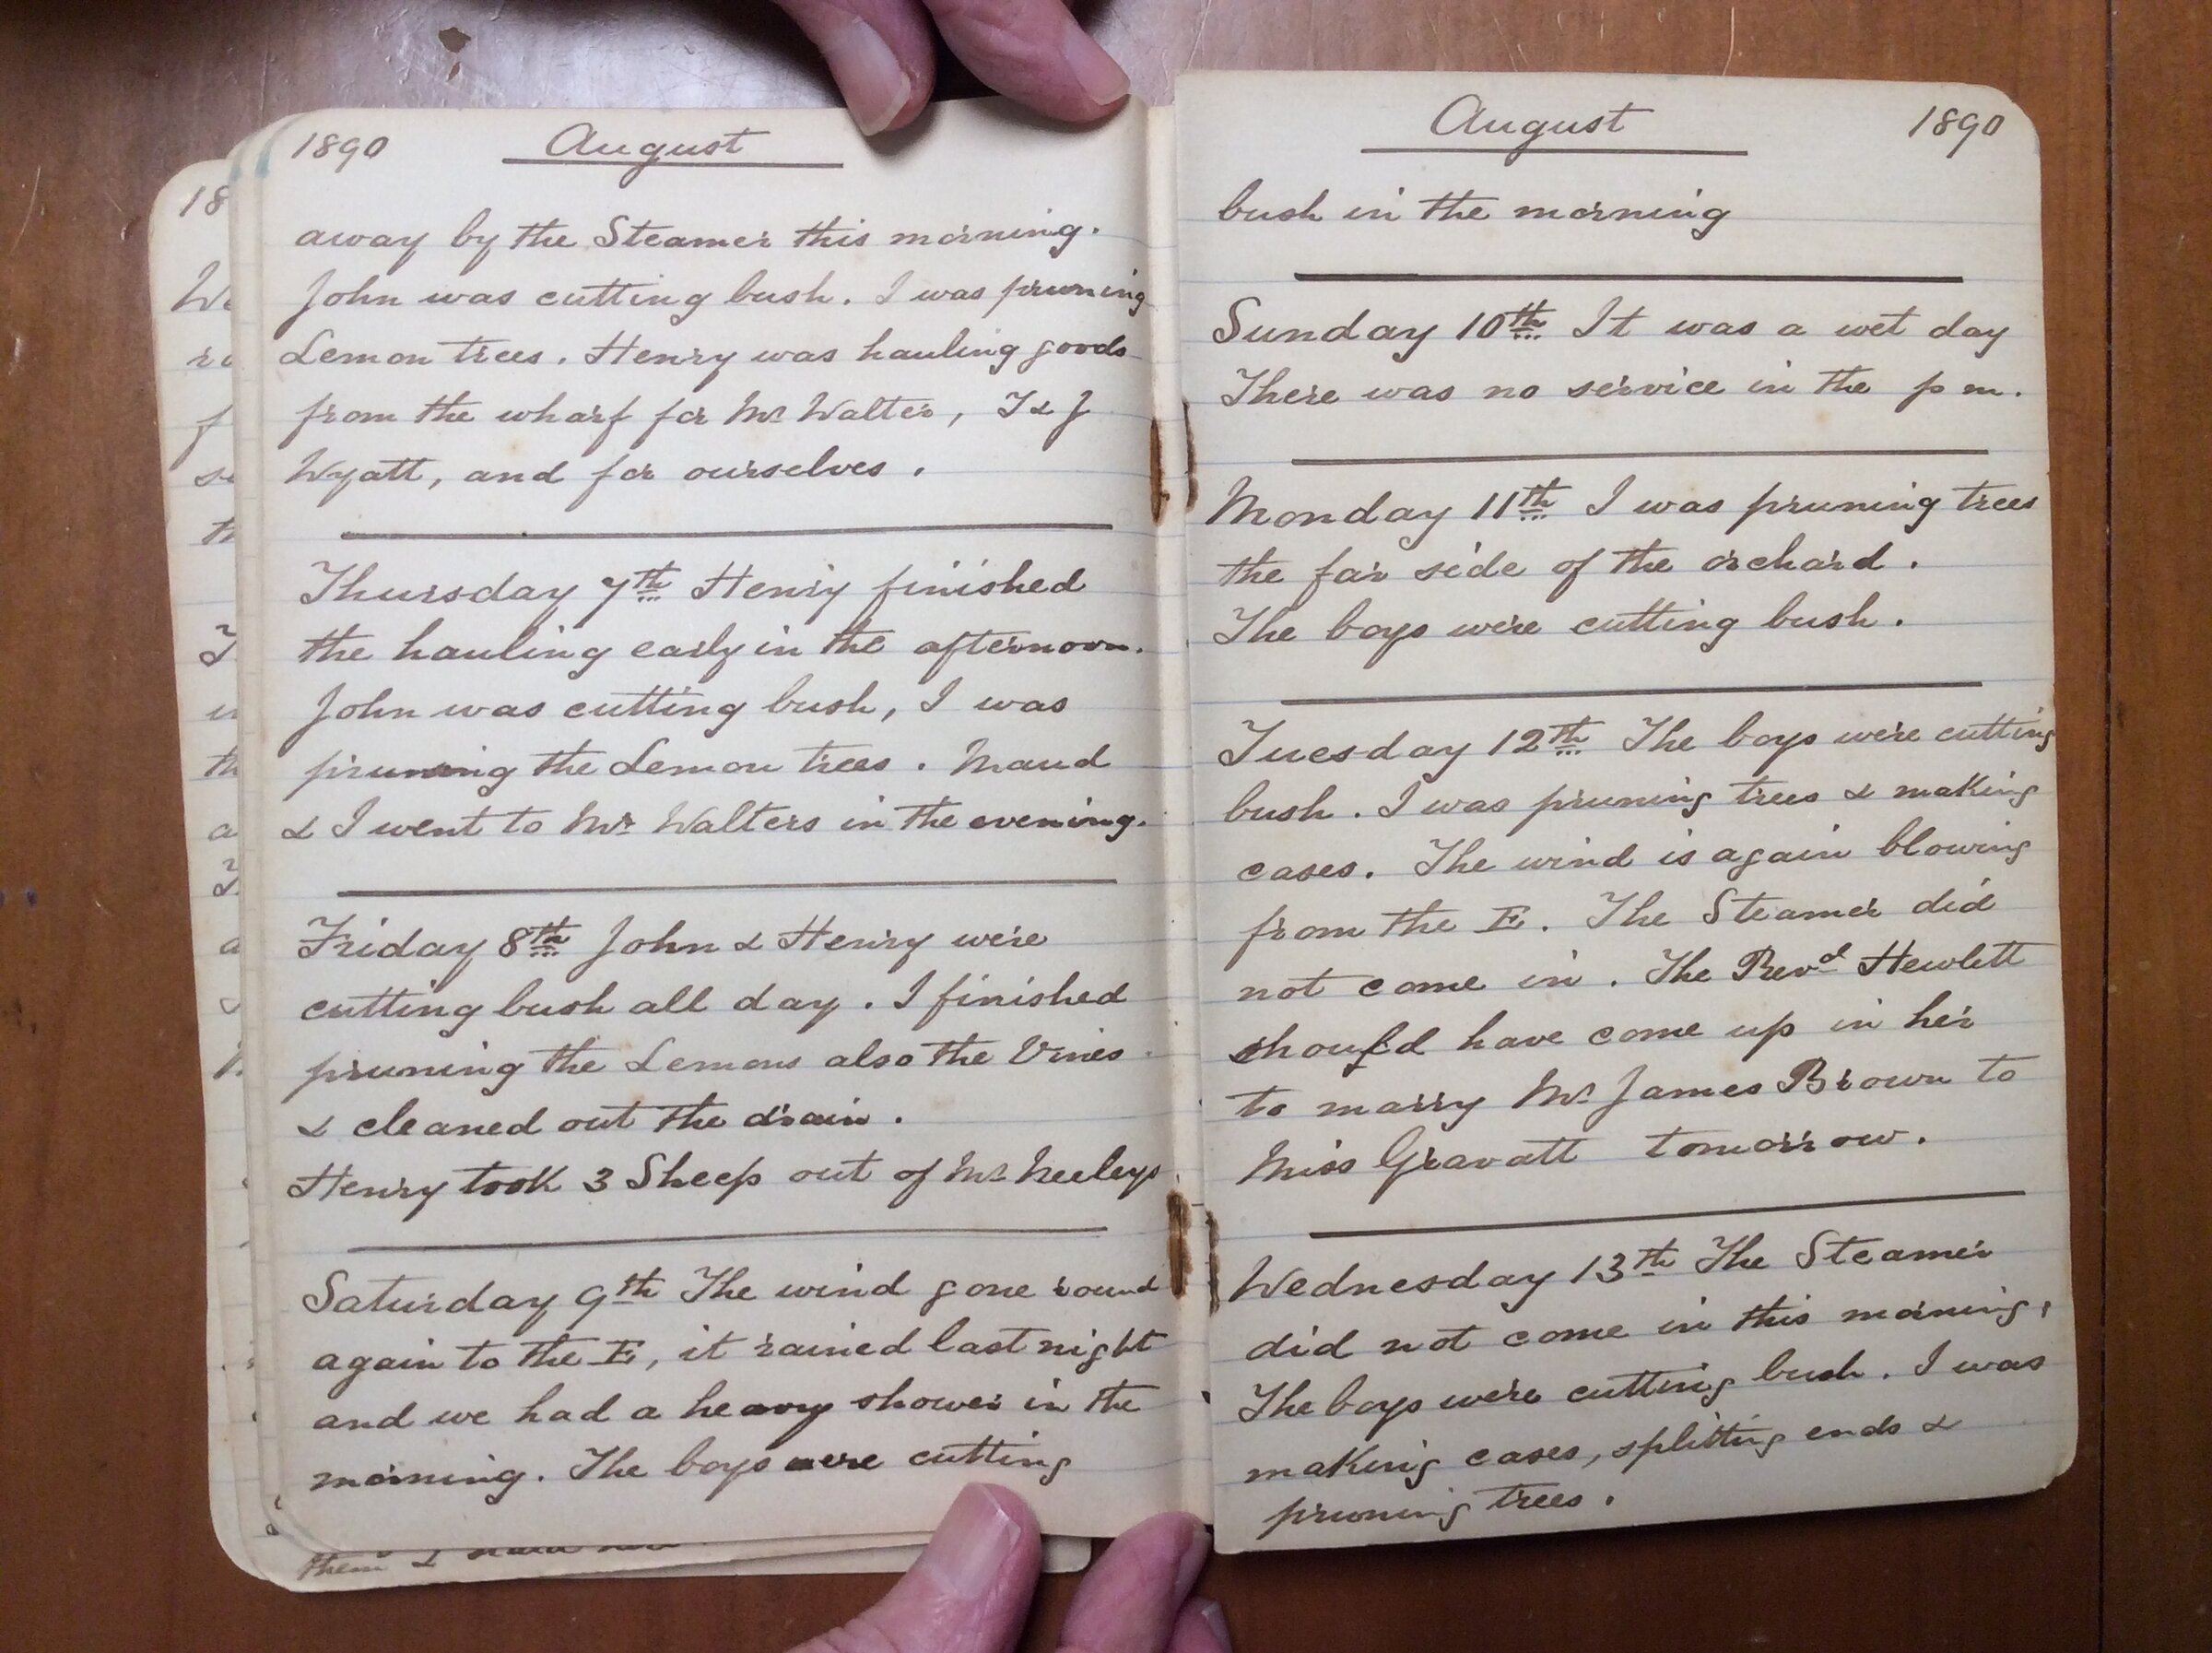 1890 August
away by the Steamer this morning.
John was cutting bush. I was pruning
Lemon trees. Henry was hauling goods
from the wharf for Mr Walter, T & J
Wyatt, and for ourselves.
Thursday 7th Henry finished
the hauling early in the afternoon.
John was cutting bush, I was
pruning the Lemon trees. Maud
& I went to Mr Walters in the evening.
Friday 8th John & Henry were
cutting bush all day. I finished
pruning the Lemons also the Vines
& cleaned out the drain.
Henry took 3 Sheep out of Mr Neeleys
Saturday 9th The wind gone round
again to the E, it rained last night
and we had a heavy shower in the
morning. The boys were cutting
August 1890
bush in the morning
Sunday 10th It was a wet day
There was no service in the p m.
Monday 11th I was pruning trees
the far side of the orchard.
The boys were cutting bush.
Tuesday 12th The boys were cutting
bush. I was pruning trees & making
cases. The wind is again blowing
from the E. The Steamer did
not come in. The Revd Hewlett
should have come up in her
to marry Mr James Brown to
Miss Gravatt tomorrow.
Wednesday 13th The Steamer
did not come in this morning,
The boys were cutting bush. I was
making cases, splitting ends &
pruning trees.